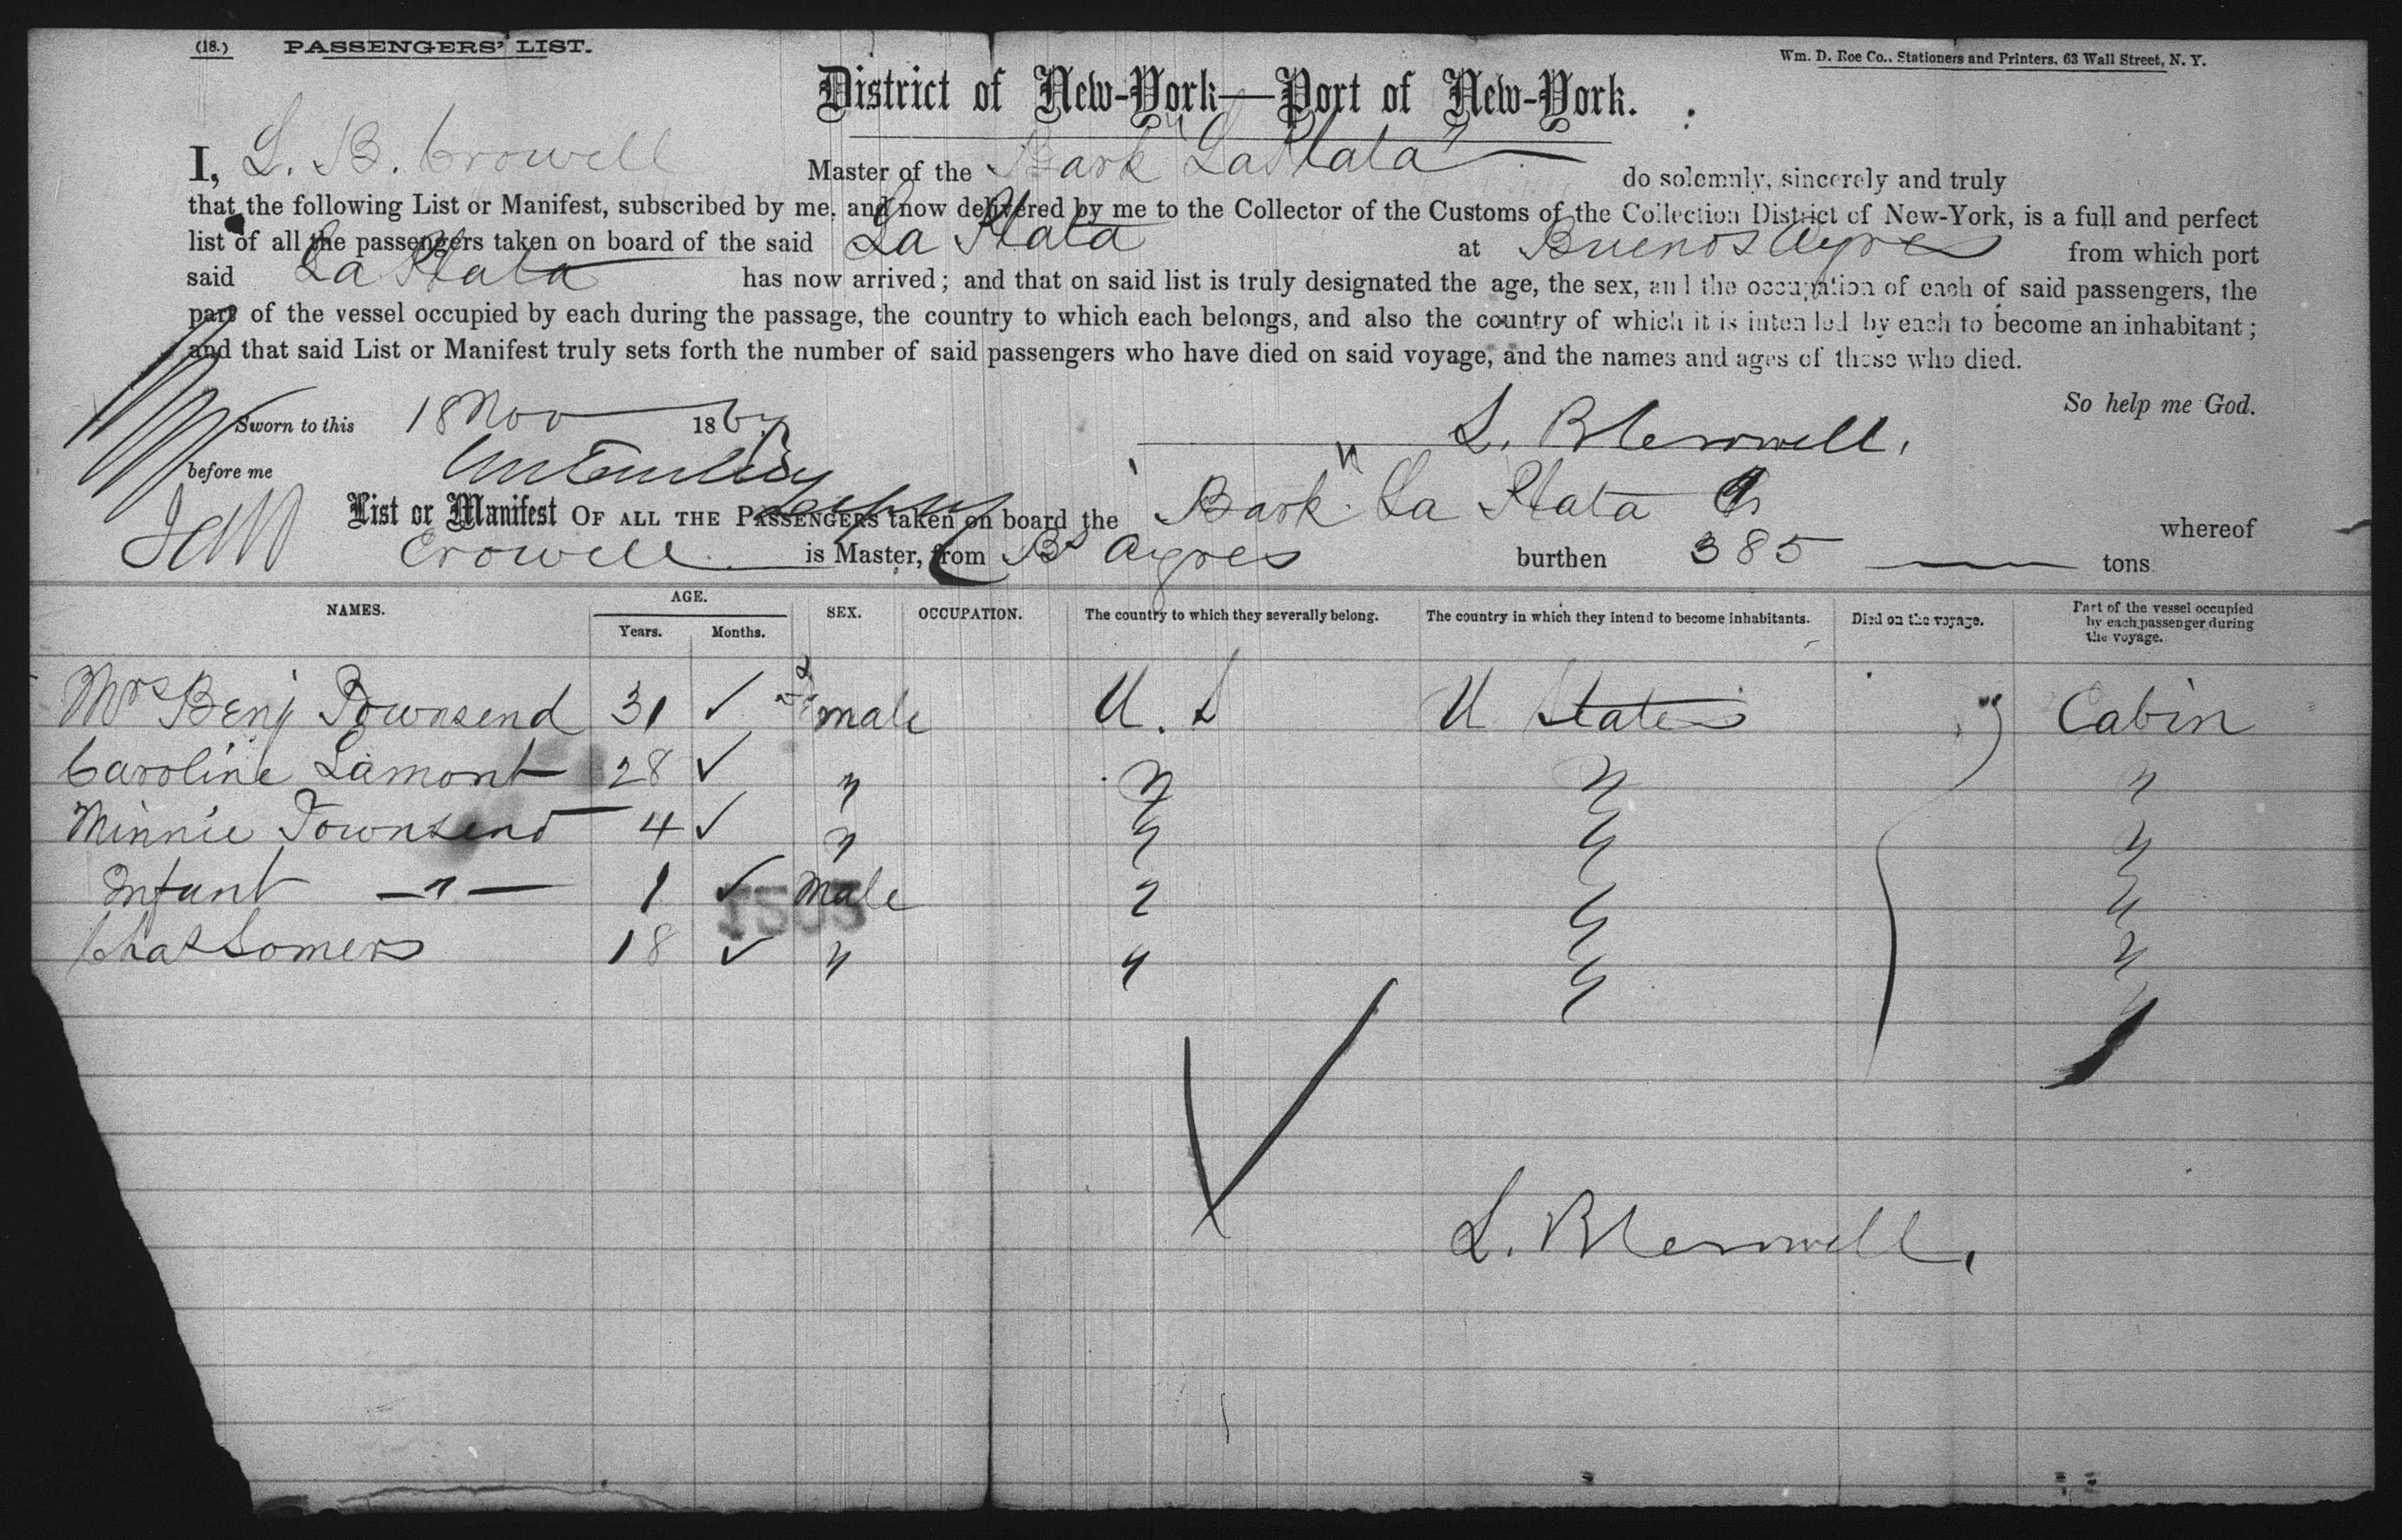 (18.) PASSENGERS' LIST.
Wm. D. Roe Co., Stationers and Printers, 63 Wall Street, N. Y.
District of New-York—Port of New-York.
I, L. B. Crowell Master of the Bark "La Plata" do solemnly, sincerely and truly
that the following List or Manifest, subscribed by me, and now delivered by me to the Collector of the Customs of the Collection District of New-York, is a full and perfect
list of all the passengers taken on board of the said La Plata at Buenos Ayres from which port
said La Plata has now arrived; and that on said list is truly designated the age, the sex, and the occupation of each of said passengers, the
part of the vessel occupied by each during the passage, the country to which each belongs, and also the country of which it is intended by each to become an inhabitant;
and that said List or Manifest truly sets forth the number of said passengers who have died on said voyage, and the names and ages of those who died.
So help me God.
Sworn to this 18 Nov 186
L. B Crowell.
before me
List or Manifest OF ALL THE PASSENGERS taken on board the Bark "La Plata" whereof
Crowell is Master, from Bs Ayres burthen 385 tons
NAMES. AGE. Years. Months. SEX. OCCUPATION. The country to which they severally belong. The country in which they intend to become inhabitants. Died on the voyage. Part of the vessel occupied by each passenger during the voyage.
Mrs Benj Townsend 31 ✓ Female U. S U States Cabin
Caroline Lamont 28 ✓ " " " "
Minnie Townsend 4 ✓ " " " "
Infant —"— 1 ✓ Male " " "
1503
Chas Somers 18 ✓ " " " "
L. B Crowell.